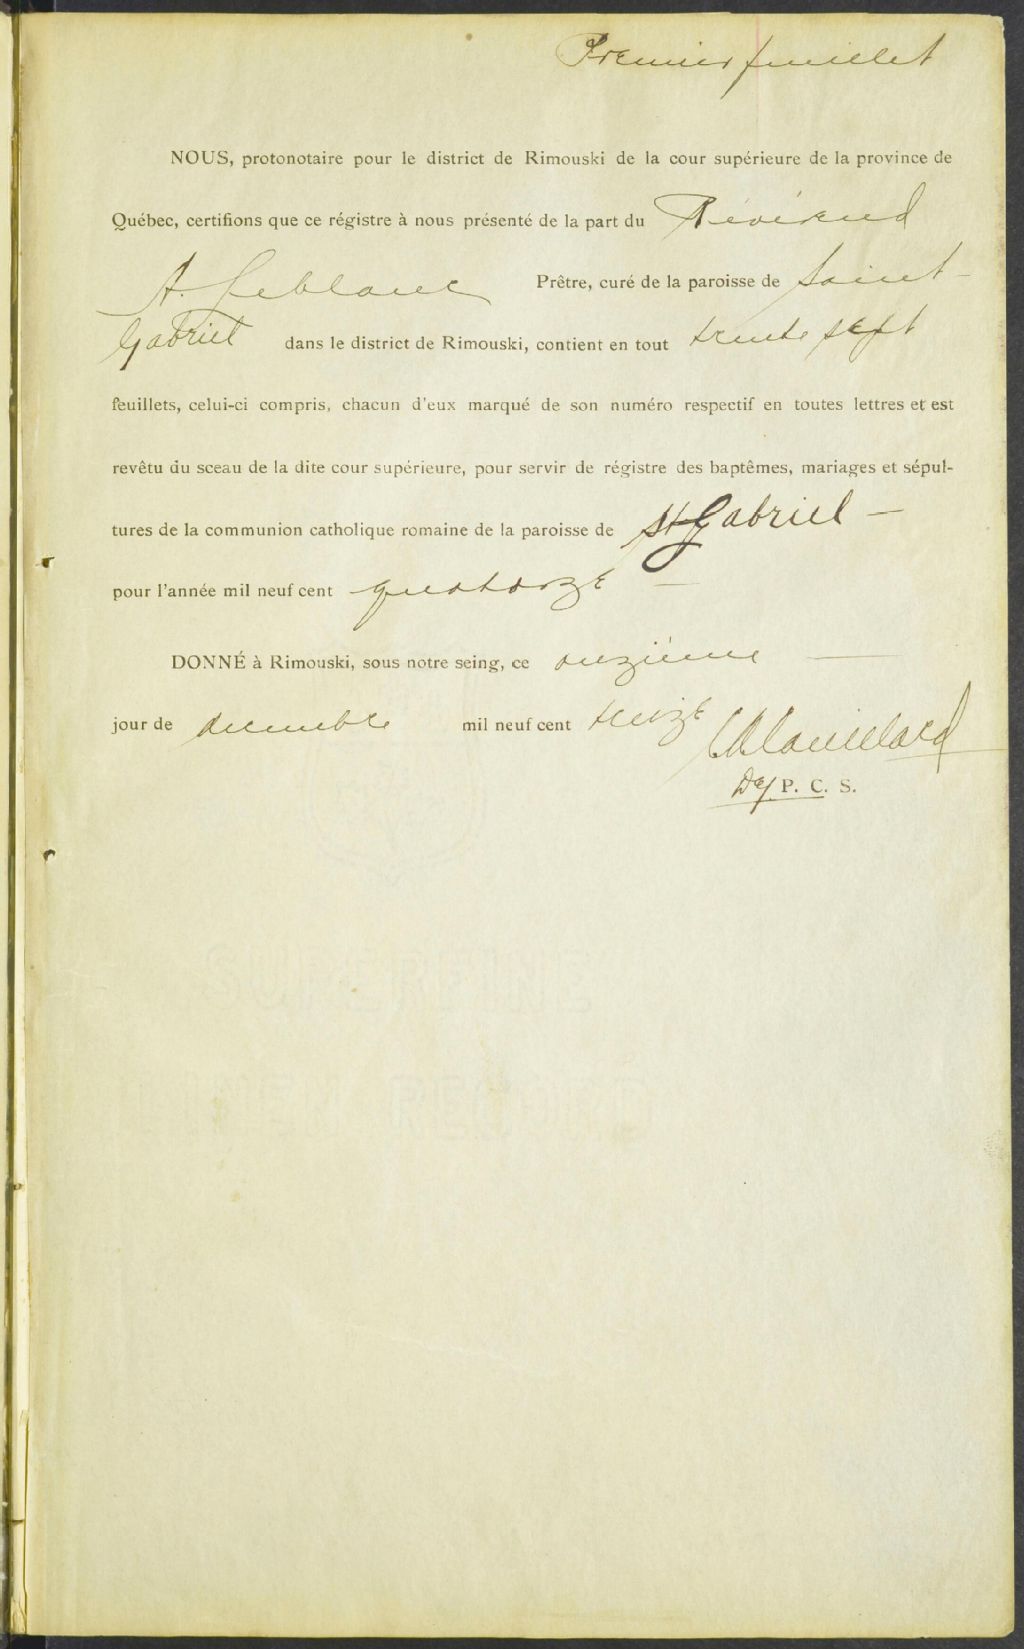 Premier feuillet
NOUS, protonotaire pour le district de Rimouski de la cour supérieure de la province de
Québec, certifions que ce régistre à nous présenté de la part du Révérend
A. Leblanc Prêtre, curé de la paroisse de Saint-
Gabriel dans le district de Rimouski, contient en tout trente sept
feuillets, celui-ci compris, chacun d'eux marqué de son numéro respectif en toutes lettres et est
revêtu du sceau de la dite cour supérieure, pour servir de régistre des baptêmes, mariages et sépul-
tures de la communion catholique romaine de la paroisse de St Gabriel —
pour l'année mil neuf cent quatorze —
DONNÉ à Rimouski, sous notre seing, ce onzième —
jour de decembre mil neuf cent treize
P. C. S.
SUPERFINE
LINEN RECORD